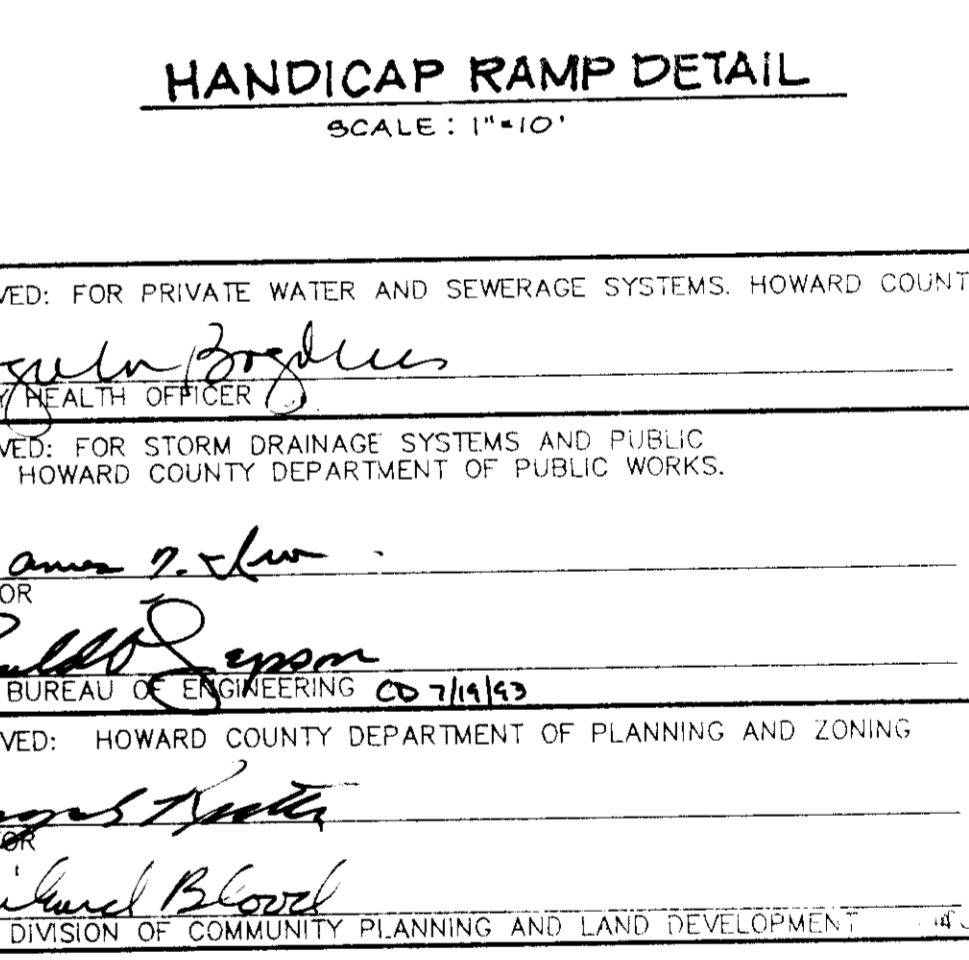 HANDICAP RAMP DETAIL
SCALE: 1"=10'
VED: FOR PRIVATE WATER AND SEWERAGE SYSTEMS. HOWARD COUNT
Y HEALTH OFFICER
VED: FOR STORM DRAINAGE SYSTEMS AND PUBLIC
HOWARD COUNTY DEPARTMENT OF PUBLIC WORKS.
ames
OR
epson
BUREAU OF ENGINEERING CD 7/19/93
VED: HOWARD COUNTY DEPARTMENT OF PLANNING AND ZONING
TOR
Blood
DIVISION OF COMMUNITY PLANNING AND LAND DEVELOPMENT